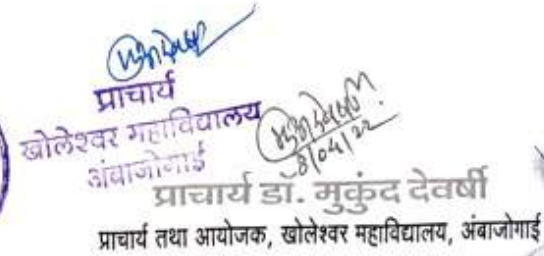 प्राचार्य
खोलेश्वर महाविद्यालय
अंबाजोगाई
8/04/22
प्राचार्य डॉ. मुकुंद देवर्षी
प्राचार्य तथा आयोजक, खोलेश्वर महाविद्यालय, अंबाजोगाई